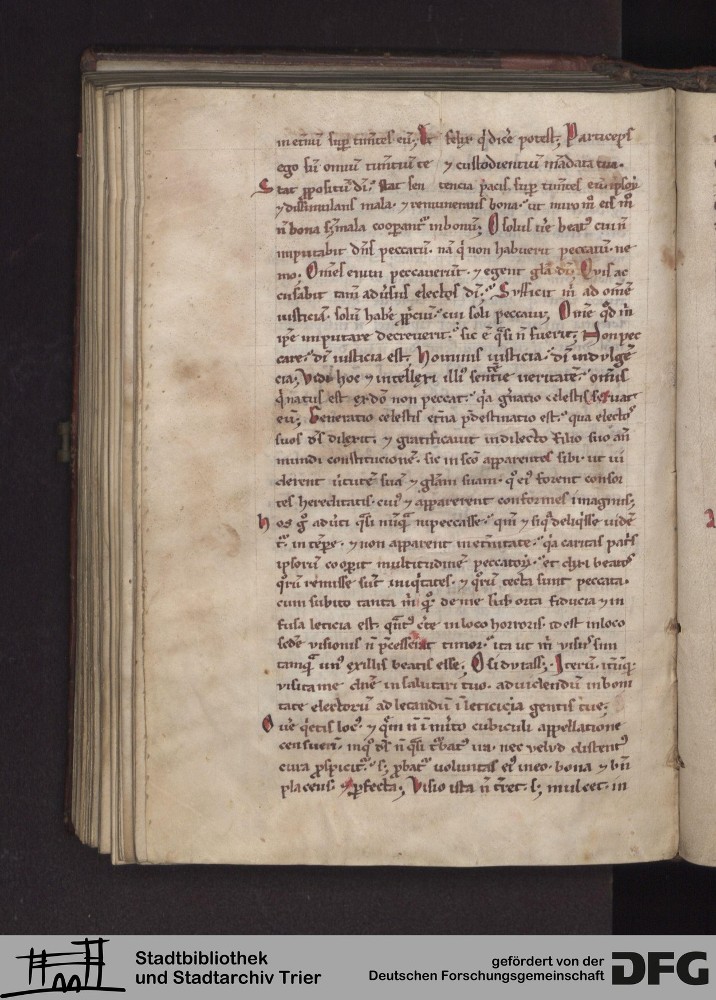 in et̄nū sup̄ tim̄tes eū; Et felix q̇ dic̄e potest; Particeps
ego sū om̄iū tim̄tiū te ⁊ custodientiū mādata tua.
Stat ꝓpositū dī. stat sententia pacis sup̄ tim̄tes eū ipsoꝝ
⁊ dissimulans mala. ⁊ remunerans bona. ut miro m̊ eis
n̄ bona s; mala cooperant᷑ in bonū; O solus ue̅ beat᷒ cui n̄
imputabit dn̄s peccatū. nā q̇ non habuerit peccatū. ne
mo; Om̄es eni peccauerūt. ⁊ egent gl̄a dī; Quis ac
cusabit tam̄ aduersus electos dī. Sufficit m̄ ad om̄e
iusticiā. solū habe̅ ꝓpiciū. cui soli peccaui; Om̄e qd̄ m̄
ip̄e n̄ imputare decreuerit. sic ē q̄si n̄ fuerit; Non pec
care. dī iusticia est. hominis iusticia. dī indulgē
cia; Vidi hoc ⁊ intellexi illi᷒ sententie ueritatē. om̄is
q̇ natus est ex dō non peccat. q̇a gn̄atio celestis seruat
eū; Generatio celestis et̄na p̄destinatio est. qua electos
suos ds̄ dilexit. ⁊ gratificauit in dilecto filio suo an̄
mundi constitucionē. sic in sc̄o apparentes sibi. ut ui
derent uirtutē suā ⁊ gl̄am suam. q̊ ei᷒ forent consor
tes hereditatis. cui᷒ ⁊ apparerent conformes imaginis;
hos g̊ aduerti q̄si nūq̄ peccasse. qm̄ ⁊ si q̇d deliq̇sse uidē
t᷑ in tēpe. ⁊ non apparent in et̄nitate. q̇a caritas pat̄s
ipsorū coop̄it multitudinē peccatoꝝ. et dixi beatos
q̊rū remisse sūt iniq̇tates. ⁊ q̊rū tecta sunt peccata.
cum subito tanta m̄ q̊q; de me suborta fiducia ⁊ in
fusa leticia est. quāt᷒ c̄te in loco horroris. id est in loco
sede̅ uisionis n̄ p̄cesserat timor. ita ut m̄ uisus sim
tamq̄ un᷒ ex illis beatis esse; O si durass;. Iterū. iterūq;
uisita me dn̄e in salutari tuo. ad uidendū in boni
tate electorū ad letandū ī leticia gentis tue;
O ue̅ q̇etis loc᷒. ⁊ quē n̄ ī m̄ito cubiculi appellatione
censuerī. in quo ds̄ n̄ q̄si t᷑bat᷒ ira. nec uelud distent᷒
cura ꝓspicit᷑. s; ꝓbat᷑ uoluntas ei᷒ in eo. bona ⁊ bn̄
placens. ⁊ ꝑfecta; Visio ista n̄ t̄ret. s; mulcet. in
Stadtbibliothek
und Stadtarchiv Trier
gefördert von der
Deutschen Forschungsgemeinschaft
DFG